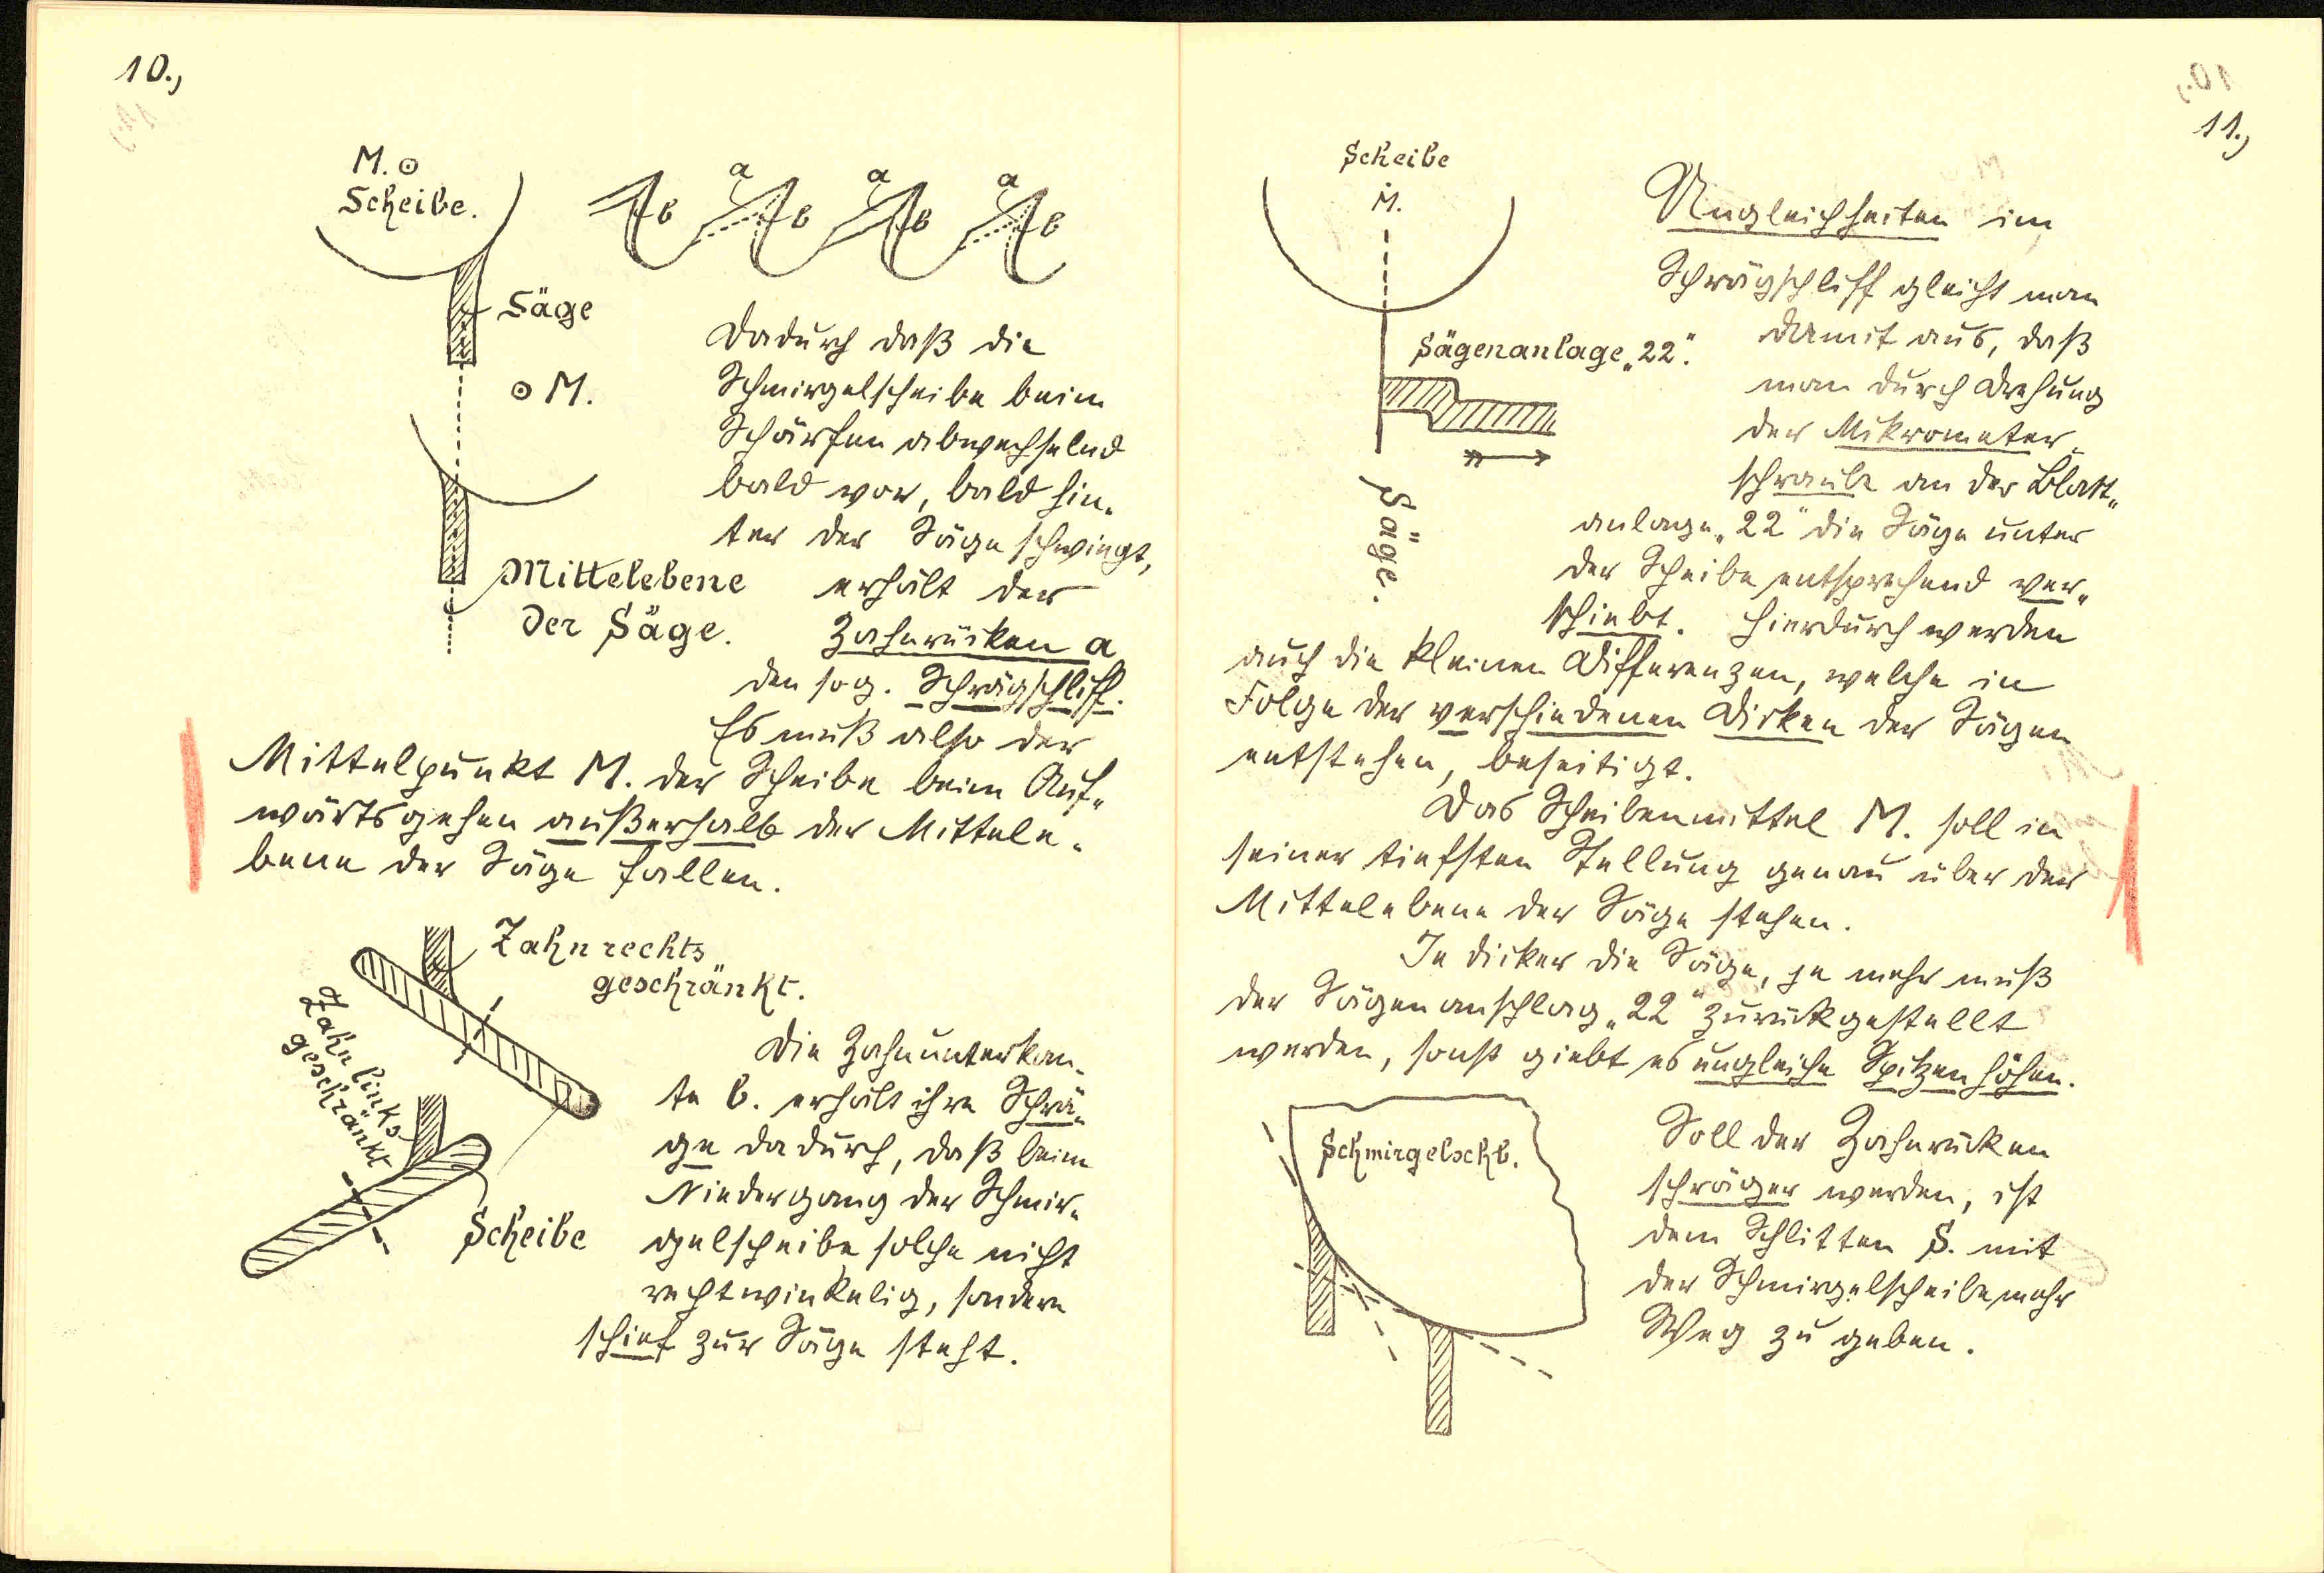 10.,
M.
Scheibe.
a a a
b b b b
Säge
M.
Mittelebene
der Säge.
Dadurch daß die
Schmirgelscheibe beim
Schärfen abwechselnd
bald vor, bald hin„
ter der Säge schwingt,
erhält der
Zahnrücken a
den sog. Schrägschliff.
Es muß also der
Mittelpunkt M. der Scheibe beim Auf„
wärtsgehen außerhalb der Mittele„
bene der Säge fallen.
Zahn rechts
geschränkt.
Zahn links
geschränkt
Scheibe
Die Zahnunterkan„
te b. erhält ihre Schrä„
ge dadurch, daß beim
Niedergang der Schmir„
gelscheibe solche nicht
rechtwinkelig, sondern
schief zur Säge steht.
11.,
Scheibe
M.
Sägenanlage „22“.
Säge.
Ungleichheiten im
Schrägschliff gleicht man
damit aus, daß
man durch Drehung
der Mikrometer„
schraube an der Blatt„
anlage „22“ die Säge unter
der Scheibe entsprechend ver„
schiebt. Hierdurch werden
auch die kleinen Differenzen, welche in
Folge der verschiedenen Dicken der Sägen
entstehen, beseitigt.
Das Scheibenmittel M. soll in
seiner tiefsten Stellung genau über der
Mittelebene der Säge stehen.
Je dicker die Säge, je mehr muß
der Sägenanschlag „22“ zurückgestellt
werden, sonst giebt es ungleiche Spitzenhöhen.
Schmirgelschb.
Soll der Zahnrücken
schräger werden, ist
dem Schlitten S. mit
der Schmirgelscheibe mehr
Weg zu geben.